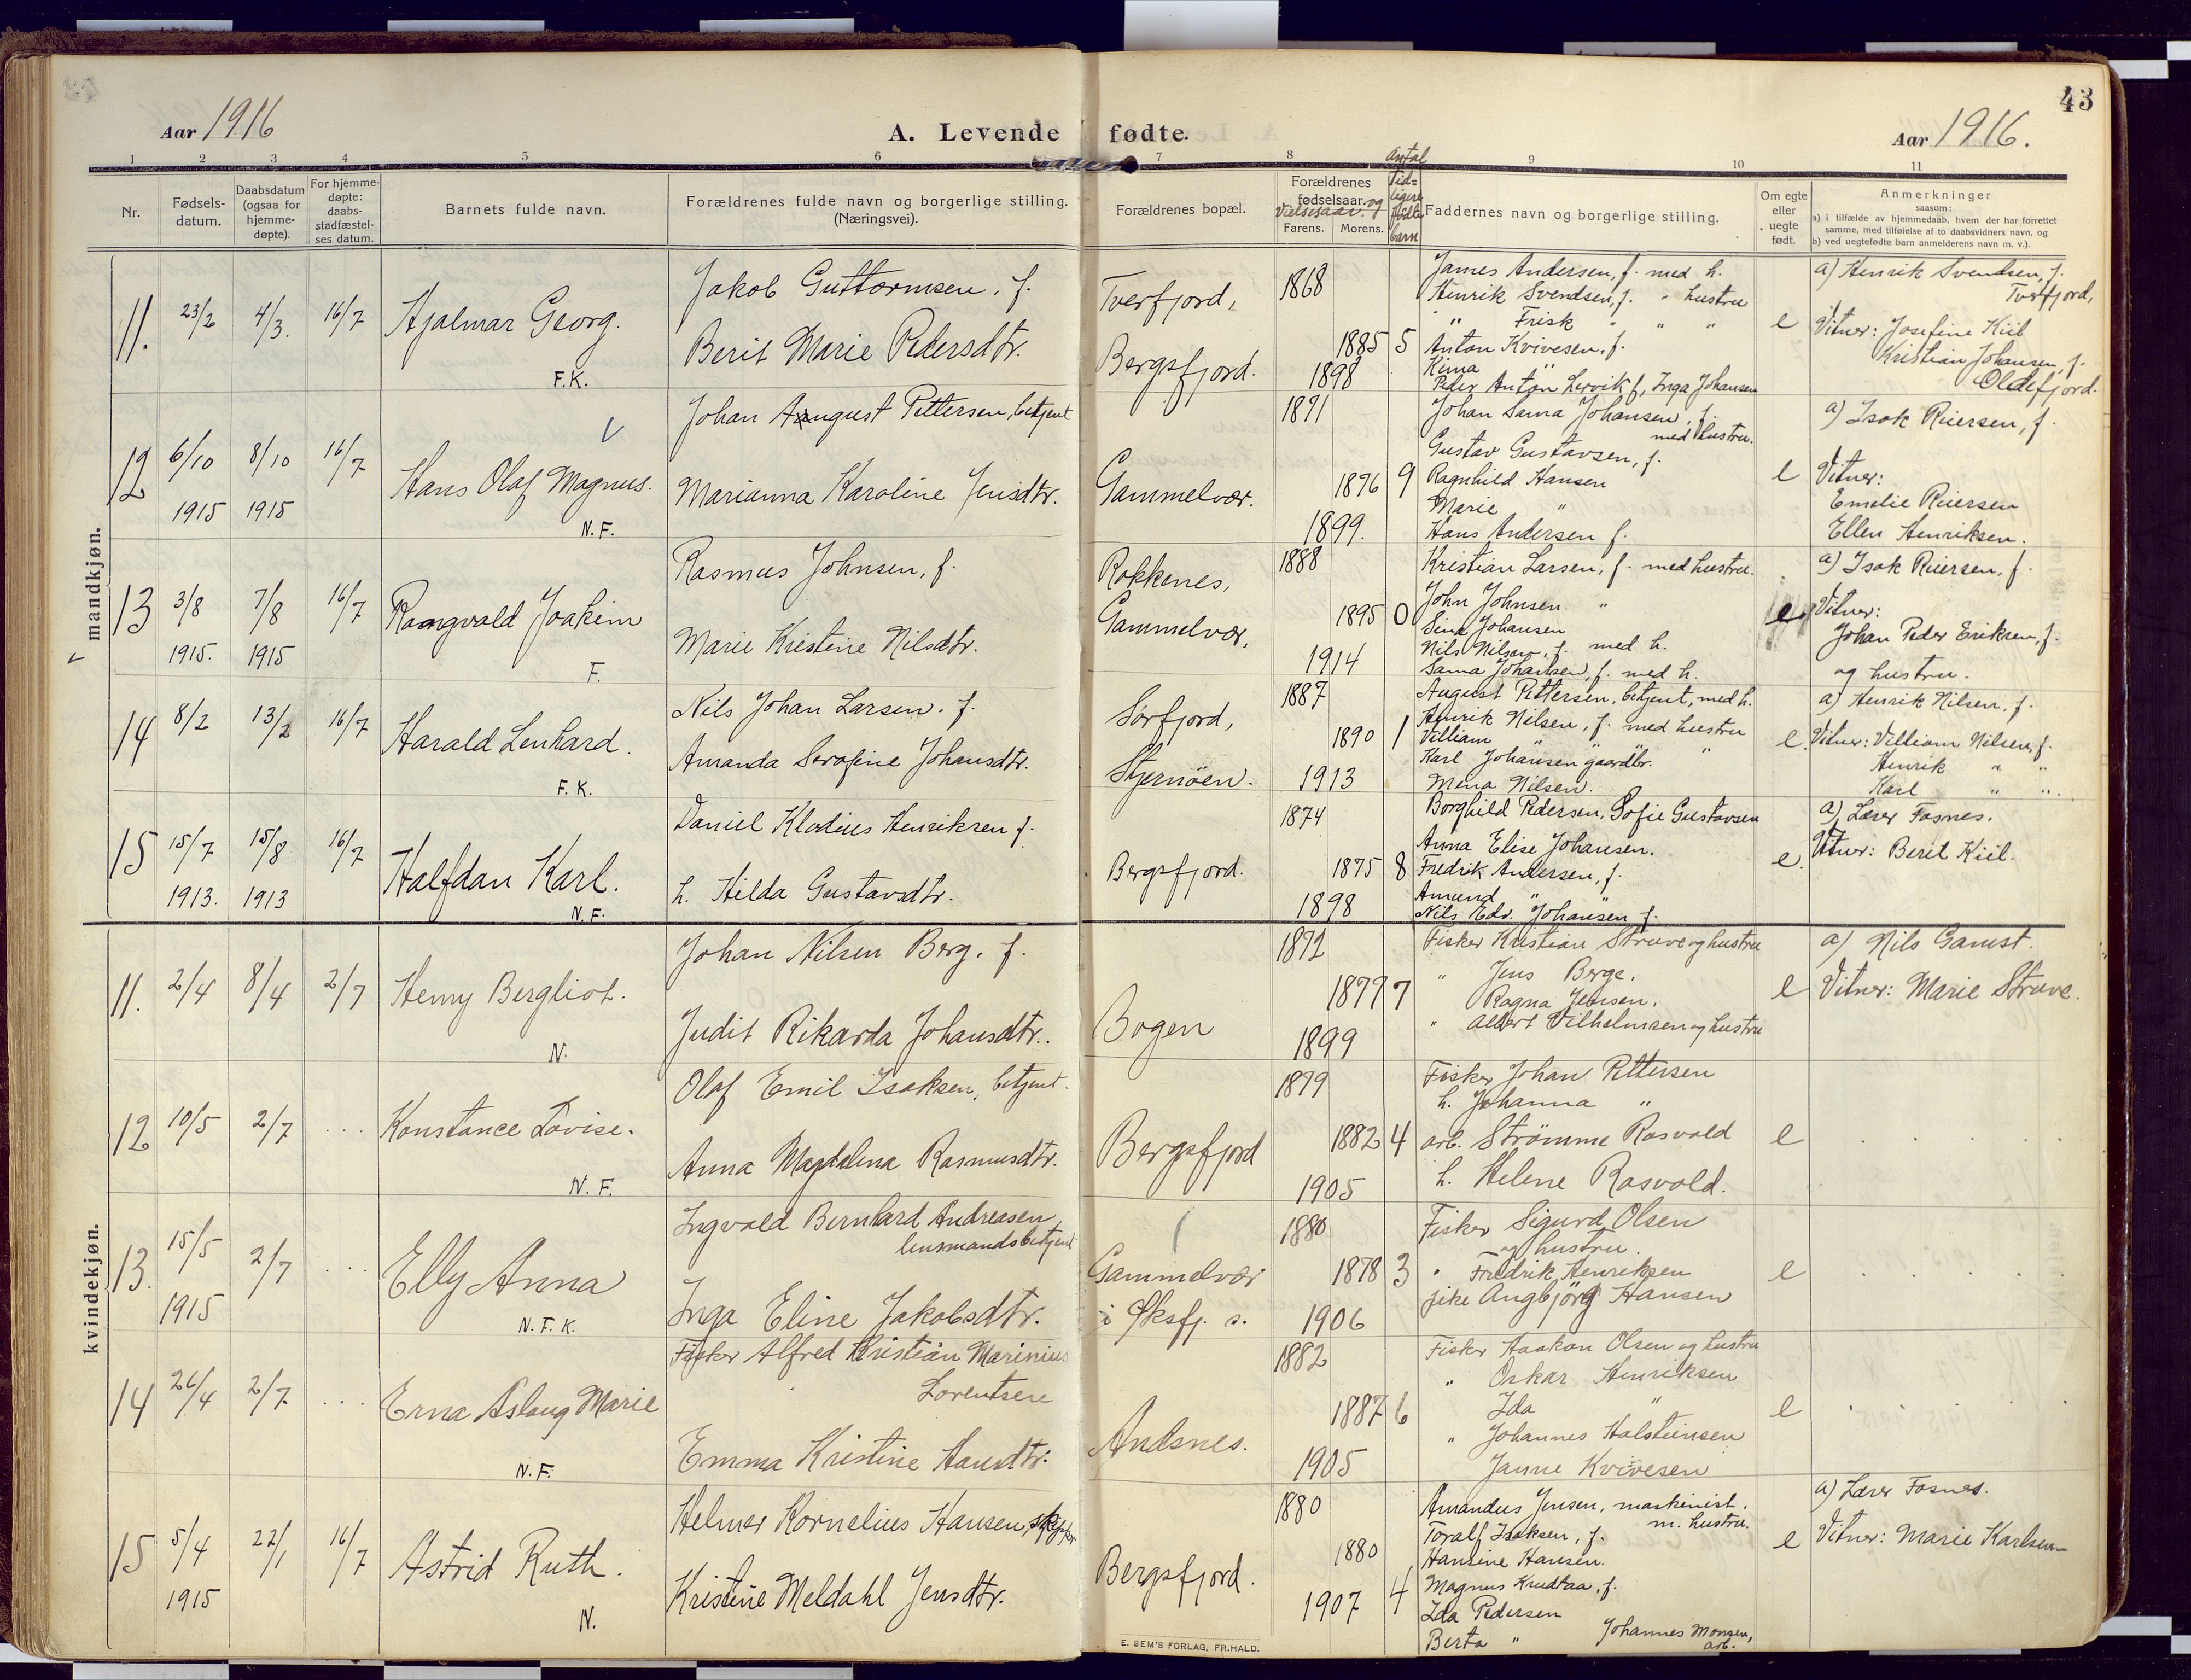 43
Aar 1916
A. Levende fødte.
Aar 1916.
1 2 3 4 5 6 7 8 9 10 11
Nr.
Fødsels-
datum.
Daabsdatum
(ogsaa for
hjemme-
døpte).
For hjemme-
døpte:
daabs-
stadfæstel-
ses datum.
Barnets fulde navn.
Forældrenes fulde navn og borgerlige stilling.
(Næringsvei).
Forældrenes bopæl.
Forældrenes
fødselsaar. og
Vielsesaar.
Farens. Morens.
Antal
tid-
ligere
fødte
barn
Faddernes navn og borgerlige stilling.
Om egte
eller
uegte
født.
Anmerkninger
saasom:
a) i tilfælde av hjemmedaab, hvem der har forrettet
samme, med tilføielse af to daabsvidners navn, og
b) ved uegtefødte barn anmelderens navn m. v.).
mandkjøn.
11. 23/2 4/3. 16/7 Hjalmar Georg.
F.K.
Jakob Guttormsen, f.
Berit Marie Pedersdtr.
Tverfjord,
Bergsfjord.
1868
1885 5
1898
James Andersen, f. med h.
Henrik Svendsen, f. " hustru
" Frisk " " "
Anton Kvivesen, f.
Kima "
Peder Anton Lervik f, Inga Johansen
e
a) Henrik Svendsen, f.
Tverfjord,
Vitner: Josefine Kiil
Kristian Johansen, f.
Oldefjord.
12 6/10 1915 8/10 1915 16/7 Hans Olaf Magnus.
N.F.
Johan August Pettersen, betjent
Marianna Karoline Jensdtr.
Gammelvær.
1871
1876 9
1899.
Johan Sama Johansen, f.
med hustru.
Gustav Gustavsen, f.
Ragnhild Hansen
Marie "
Hans Andersen f.
e
a) Isak Riersen, f.
Vitner:
Emelie Riersen
Ellen Henriksen.
13 3/8 1915. 7/8 1915 16/7 Rangvald Joakim
F.
Rasmus Johnsen, f.
Marie Kristine Nilsdtr.
Rokkenes,
Gammelvær,
1888
1895 0
1914
Kristian Larsen, f. med hustru.
John Johnsen "
Sina Johansen
Nils Nilsen, f. med h.
Sama Johansen, f. med h.
e
a) Isak Riersen, f.
Vitner:
Johan Peder Eriksen, f.
og hustru.
14 8/2 13/2 16/7 Harald Lenhard.
F.K.
Nils Johan Larsen. f.
Amanda Serafine Johansdtr.
Sørfjord,
Stjernöen.
1887
1890 1
1913
August Pettersen, betjent, med h.
Henrik Nilsen, f. med hustru
Villiam " " "
Karl Johansen gaardbr.
Mena Nilsen.
e.
a) Henrik Nilsen, f.
Vitner: Villiam Nilsen, f.
Henrik " "
Karl " "
15 15/7 1913. 15/8 1913 16/7 Halfdan Karl.
N.F.
Daniel Klodius Henriksen f.
h. Hilda Gustavsdtr.
Bergsfjord.
1874
1875 8
1898
Borghild Pedersen, Sofie Gustavsen
Anna Elise Johansen.
Fredrik Andersen, f.
Amund "
Nils Edv. Johansen f.
e.
a) Lærer Fosnes.
Vitner: Berit Kiil.
kvindekjøn.
11. 2/4 8/4 2/7 Henny Bergliot.
N.
Johan Nilsen Berg. f.
Judit Rikarda Johansdtr.
Bogen
1872
1879 7
1899
Fisker Kristian Struve og hustru
" Jens Berge.
Ragna Jensen.
" Albert Vilhelmsen og hustru
e
a) Nils Gamst.
Vitner: Marie Struve.
12 10/5 2/7 ... Konstance Lovise.
N.F.
Olaf Emil Isaksen, betjent.
Anna Magdalena Rasmusdtr.
Bergsfjord
1879
1882 4
1905
Fisker Johan Pettersen
h. Johanna "
arb. Strømme Rosvold
h. Helene Rosvold.
e
13. 15/5 1915 2/7 ... Elly Anna
N.F.K.
Ingvald Bernhard Andreasen
lensmandsbetjent
Inga Eline Jakobsdtr.
Gammelvær
i Øksfj. s.
1880
1878 3
1906
Fisker Sigurd Olsen
og hustru.
" Fredrik Henriksen
pike Angbjörg Hansen
e
14 26/4 2/7 ... Erna Aslaug Marie
N.F.
Fisker Alfred Kristian Marinius
Lorentsen
Emma Kristine Hansdtr.
Andsnes.
1882
1887 6
1905
Fisker Haakon Olsen og hustru
" Oskar Henriksen
Ida "
" Johannes Halsteinsen
Janne Kvivesen
e
15 5/4 1915 22/1 16/7 Astrid Ruth.
N.
Helmer Kornelius Hansen, skipper
Kristine Meldahl Jensdtr.
Bergsfjord.
1880
1880
1907 4
Amandus Jensen, maskinist.
m. hustru.
Toralf Isaksen, f.
Hansine Hansen.
Magnus Krudtaa, f.
Ida Pedersen
Berta " Johannes Monsen,
arb.
e
a) Lærer Fosnes.
Vitner: Marie Karlsen
E. SEM'S FORLAG, FR.HALD.